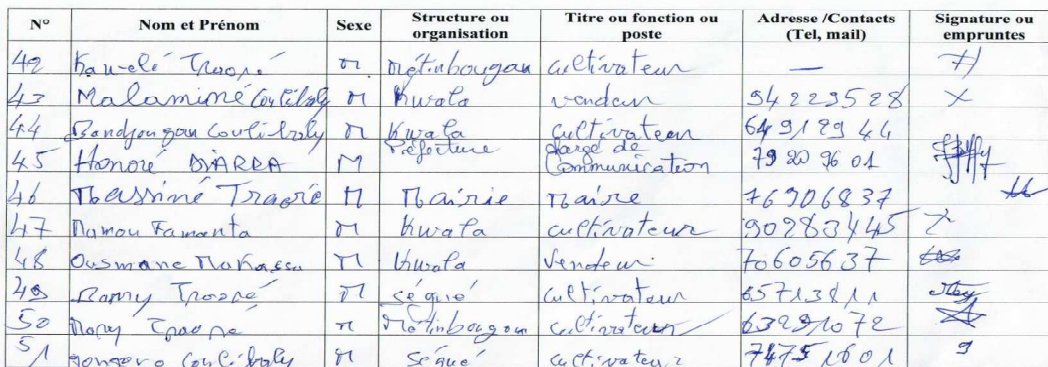 N° Nom et Prénom Sexe Structure ou organisation Titre ou fonction ou poste Adresse /Contacts (Tel, mail) Signature ou empruntes
42 Traoré M cultivateur —
43 Malaminé Coulibaly M Kwala vendeur 94229528
44 Bandjougou Coulibaly M Kwala cultivateur 64912944
45 Honoré DIARRA M Préfecture chargé de Communication 79209601
46 Massiné Traoré M Mairie maire 76906837
47 Mamou Famanta M Kwala cultivateur 90283445
48 Ousmane Makassa M Kwala Vendeur 70605637
49 Ramy Traoré M ségué cultivateur 65713811
50 Traoré M cultivateur 63291072
51 Coulibaly M ségué cultivateur 74751601